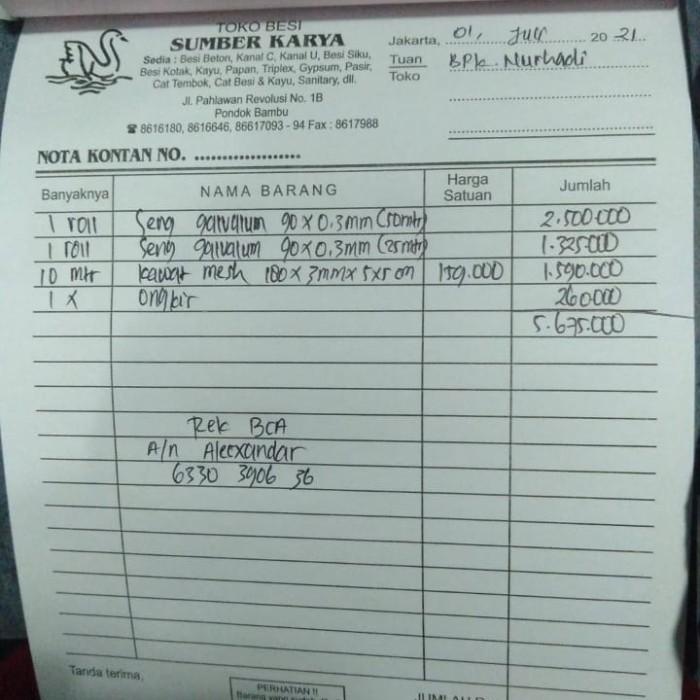 TOKO BESI
SUMBER KARYA
Sedia : Besi Beton, Kanal C, Kanal U, Besi Siku,
Besi Kotak, Kayu, Papan, Triplex, Gypsum, Pasir,
Cat Tembok, Cat Besi & Kayu, Sanitary, dll.
Jl. Pahlawan Revolusi No. 1B
Pondok Bambu
☎ 8616180, 8616646, 86617093 - 94 Fax : 8617988
Jakarta, 01, Juli 2021
Tuan BPk. Nurhadi
Toko
NOTA KONTAN NO. ...................
Banyaknya NAMA BARANG Harga Satuan Jumlah
1 roll Seng galvalum 90 x 0.3mm (50mtr) 2.500.000
1 roll Seng galvalum 90 x 0,3mm (25mtr) 1.325.000
10 mtr kawat mesh 180 x 3mm x 5x5 cm 159.000 1.590.000
1 x ongkir 260.000
5.675.000
Rek BCA
A/n Aleexandar
6330 3906 36
Tanda terima,
PERHATIAN !!